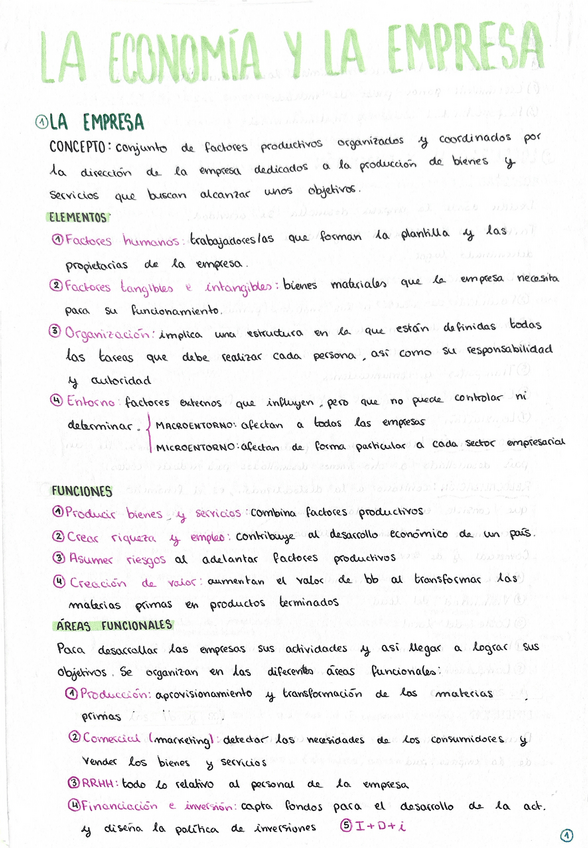 LA ECONOMÍA Y LA EMPRESA
① LA EMPRESA
CONCEPTO: conjunto de factores productivos organizados y coordinados por
la dirección de la empresa dedicados a la producción de bienes y
servicios que buscan alcanzar unos objetivos.
ELEMENTOS
① Factores humanos: trabajadores/as que forman la plantilla y las
propietarias de la empresa.
② Factores tangibles e intangibles: bienes materiales que la empresa necesita
para su funcionamiento.
③ Organización: implica una estructura en la que están definidas todas
las tareas que debe realizar cada persona, así como su responsabilidad
y autoridad
④ Entorno: factores externos que influyen, pero que no puede controlar ni
determinar. MACROENTORNO: afectan a todas las empresas
MICROENTORNO: afectan de forma particular a cada sector empresarial
FUNCIONES
① Producir bienes y servicios: combina factores productivos
② Crear riqueza y empleo: contribuye al desarrollo económico de un país.
③ Asumer riesgos al adelantar factores productivos
④ Creación de valor: aumentan el valor de bb al transformar las
materias primas en productos terminados
ÁREAS FUNCIONALES
Para desarrollar las empresas sus actividades y así llegar a lograr sus
objetivos. Se organizan en las diferentes áreas funcionales:
① Producción: aprovisionamiento y transformación de las materias
primas
② Comercial (marketing): detectar las necesidades de los consumidores y
vender los bienes y servicios
③ RRHH: todo lo relativo al personal de la empresa
④ Financiación e inversión: capta fondos para el desarrollo de la act.
y diseña la política de inversiones ⑤ I+D+i
①